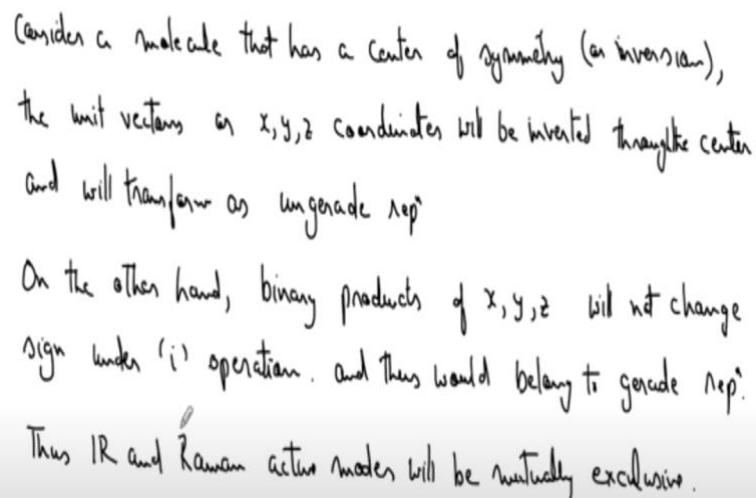 Consider a molecule that has a center of symmetry (or inversion),
the unit vectors or x,y,z coordinates will be inverted through the center
and will transform as ungerade repⁿ
On the other hand, binary products of x,y,z will not change
sign under 'i' operation. and thus would belong to gerade repⁿ.
Thus IR and Raman active modes will be mutually exclusive.